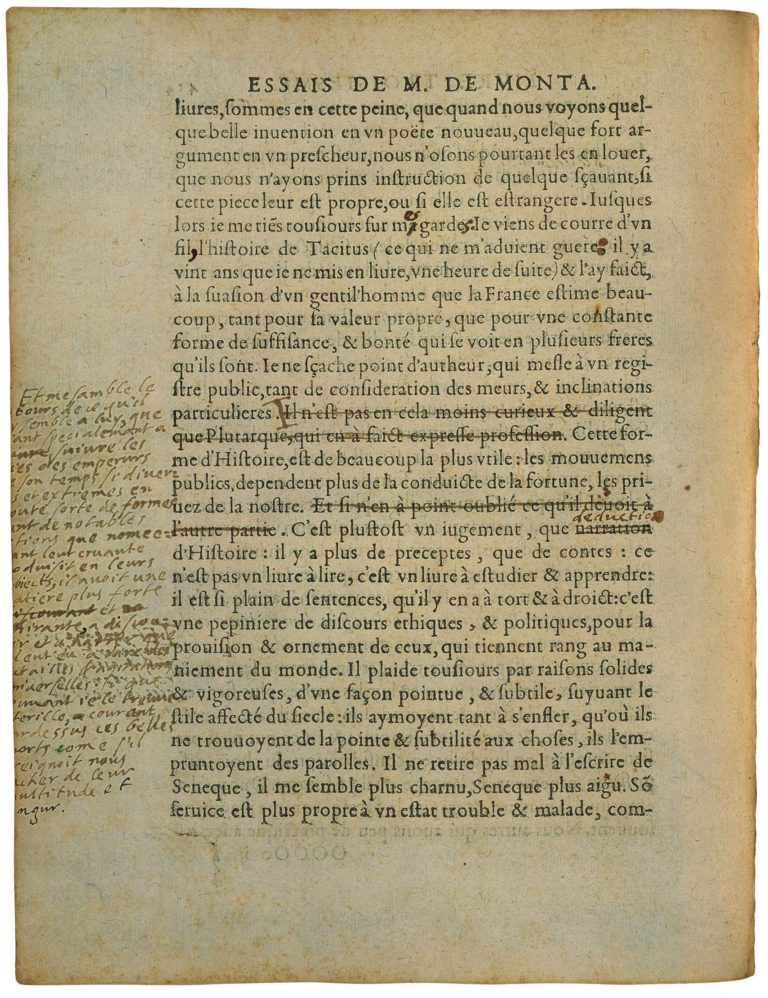 ESSAIS DE M. DE MONTA.
liures, sommes en cette peine, que quand nous voyons quel-
que belle inuention en vn poëte nouueau, quelque fort ar-
gument en vn prescheur, nous n'osons pourtant les en louer,
que nous n'ayons prins instruction de quelque sçauant, si
cette piece leur est propre, ou si elle est estrangere. Iusques
lors ie me tiẽs tousiours sur mes gardes. Ie viens de courre d'vn
fil, l'histoire de Tacitus (ce qui ne m'aduient guere, il y a
vint ans que ie ne mis en liure, vne heure de suite) & l'ay faict,
à la suasion d'vn gentil'homme que la France estime beau-
coup, tant pour sa valeur propre, que pour vne cõstante
forme de suffisance, & bonté qui se voit en plusieurs freres
qu'ils sont. Ie ne sçache point d'autheur, qui mesle à vn regi-
stre public, tant de consideration des meurs, & inclinations
particulieres. Il n'est pas en cela moins curieux & diligent
que Plutarque, qui en à faict expresse profession. Cette for-
me d'Histoire, est de beaucoup la plus vtile: les mouuemens
publics, dependent plus de la conduicte de la fortune, les pri-
uez de la nostre. Et si n'en à point oublié ce qu'il deuoit à
deduction
l'autre partie. C'est plustost vn iugement, que narration
d'Histoire: il y a plus de preceptes, que de contes: ce
n'est pas vn liure à lire, c'est vn liure à estudier & apprendre:
il est si plain de sentences, qu'il y en a à tort & à droict: c'est
vne pepiniere de discours ethiques, & politiques, pour la
prouision & ornement de ceux, qui tiennent rang au ma-
niement du monde. Il plaide tousiours par raisons solides
& vigoreuses, d'vne façon pointue, & subtile, suyuant le
stile affecté du siecle: ils aymoyent tant à s'enfler, qu'où ils
ne trouuoyent de la pointe & subtilité aux choses, ils l'em-
pruntoyent des parolles. Il ne retire pas mal à l'escrire de
Seneque, il me semble plus charnu, Seneque plus aigu. Sõ
seruice est plus propre à vn estat trouble & malade, com-
Et me samble le
semble a luy, que
ant specialement a
suivre les
des emperurs
son temps si diver
et extremes en
oute sorte de formes
nt de notables
tions que nomee
ant leur cruante
oduisit en leurs
biects, il avoit une
atiere plus forte
et
a
niverselles
mant ie le treuve
sterille, courant
rdessus ces belles
orts come s'il
reignoit nous
cher de leur
ultitude et
ngur.